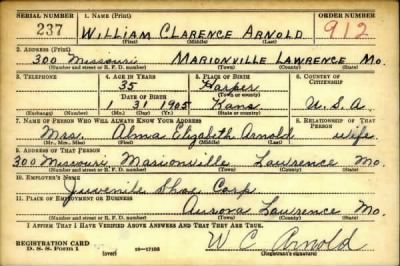 SERIAL NUMBER 1. NAME (Print) ORDER NUMBER
237 WILLIAM CLARENCE ARNOLD 912
(First) (Middle) (Last)
2. ADDRESS (Print)
300 Missouri MARIONVILLE LAWRENCE Mo.
(Number and street or R. F. D. number) (Town) (County) (State)
3. TELEPHONE 4. AGE IN YEARS 5. PLACE OF BIRTH 6. COUNTRY OF CITIZENSHIP
35 Harper
(Town or county)
DATE OF BIRTH
1 31 1905 Kans. U.S.A
(Exchange) (Number) (Mo.) (Day) (Yr.) (State or country)
7. NAME OF PERSON WHO WILL ALWAYS KNOW YOUR ADDRESS 8. RELATIONSHIP OF THAT PERSON
Mrs. Alma Elizabeth Arnold wife
(Mr., Mrs., Miss) (First) (Middle) (Last)
9. ADDRESS OF THAT PERSON
300 Missouri, Marionville Lawrence Mo.
(Number and street or R. F. D. number) (Town) (County) (State)
10. EMPLOYER'S NAME
Juvenile Shoe Corp
11. PLACE OF EMPLOYMENT OR BUSINESS
Aurora Lawrence Mo.
(Number and street or R. F. D. number) (Town) (County) (State)
I AFFIRM THAT I HAVE VERIFIED ABOVE ANSWERS AND THAT THEY ARE TRUE.
REGISTRATION CARD
D. S. S. Form 1 (over) 16—17105 W C Arnold
(Registrant's signature)